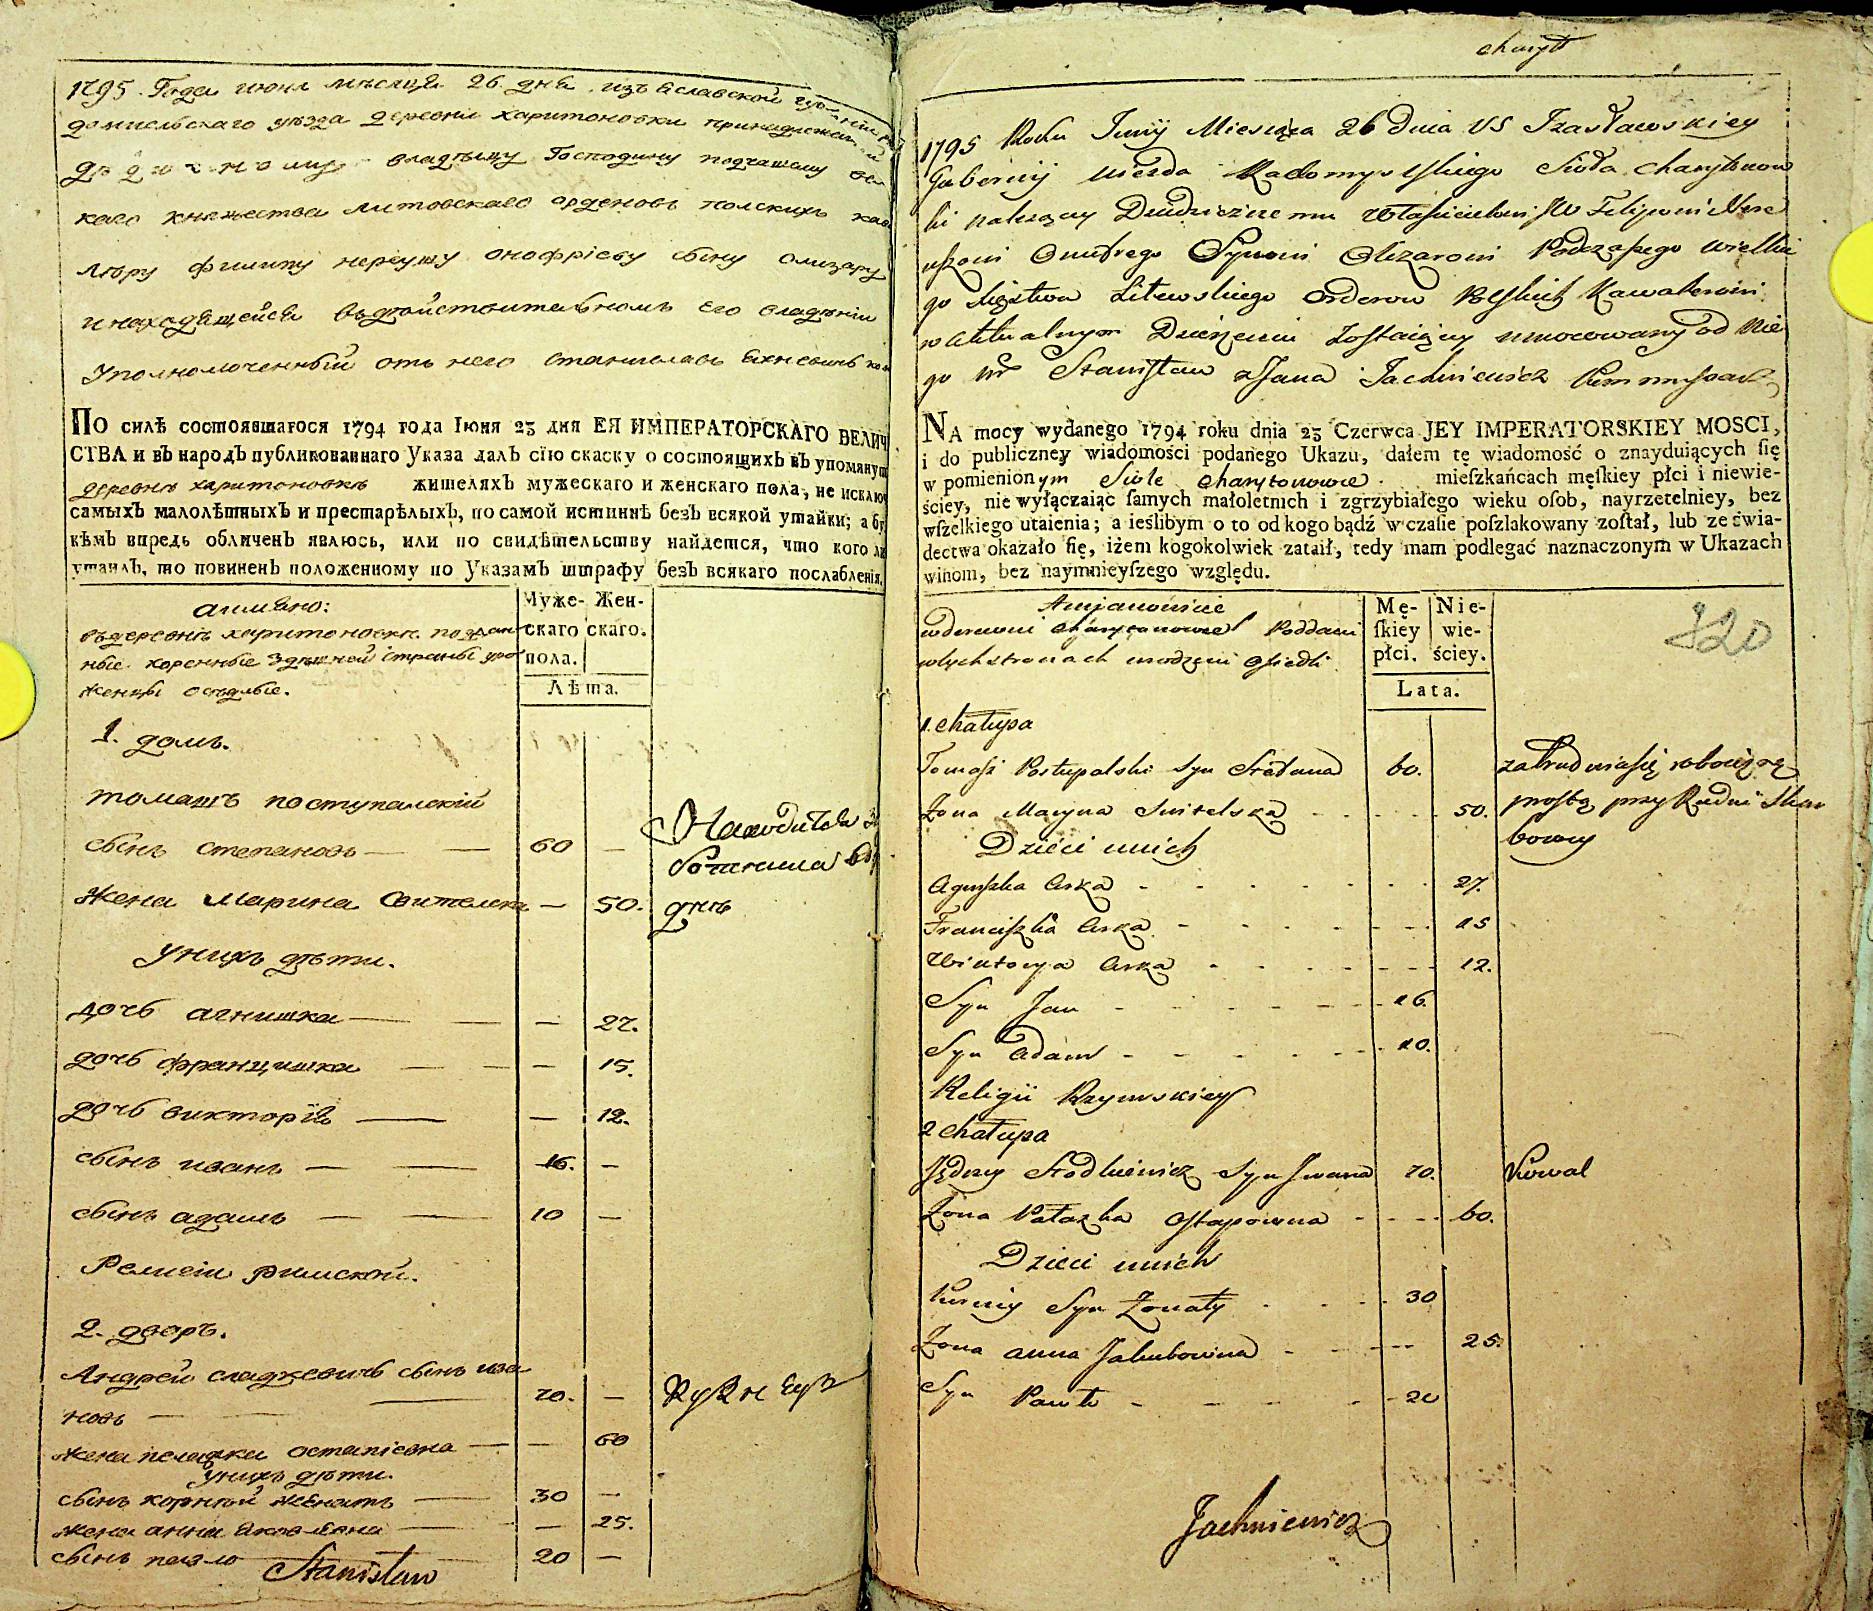 1795. Года июня мѣсяца 26. дня, изъ Еславской губерніи
домисльскаго уѣзда деревни харитоновки принадлежащей
владѣльцу Господину подчашому
каго княжества литовскаго орденовъ полскихъ кава
леру филипу нереушу онофріеву сыну олизару
и находящейся въдѣйствительномъ его владѣніи
Уполномоченный отъ него станиславъ Яхневичь
ПО силѣ состоявшагося 1794 года Іюня 23 дня ЕЯ ИМПЕРАТОРСКАГО ВЕЛИЧ
СТВА и въ народъ публикованнаго Указа далъ сїю скаску о состоящихъ въ упомянут
деревнѣ харитоновкѣ жителяхъ мужескаго и женскаго пола, не исключ
самыхъ малолѣтныхъ и престарѣлыхъ, по самой истиннѣ безъ всякой утайки; а бу
кѣмъ впредь обличенъ явлюсь, или по свидѣтельству найдется, что кого ли
утаилъ, то повиненъ положенному по Указамъ штрафу безъ всякаго послабленія.
имяно:
въдеревнѣ харитоновки подан
ные коренные здѣшней страны уро
женцы осѣдлые.
Муже- Жен-
скаго скаго.
пола.
Лѣта.
1. домъ.
томашъ поступалский
сынъ степановъ — — 60 —
жена Марина Свителска — 50.
Находится
днѣ
Унихъ дѣти.
дочь агнишка — — — 27.
дочь францишка — — — 15.
дочь викторія — — 12.
сынъ иванъ — — 16. —
сынъ адамъ — — 10 —
Религіи римской.
2. дворъ.
Андрей сладкевичь сынъ ива
новъ — — 70. — Кузнецъ
жена пелашка остапіевна — — 60
Унихъ дѣти.
сынъ корней женатъ — 30 —
жена анна Яковлевна — — 25.
сынъ павло — 20 —
Stanisław
charyt
1795 Roku Junij Miesiąca 26 Dnia VS Izasławskiey
Gubernij uiezda Radomyslskiego Sioła Charytonow
ki nalezący Dziedzicznemu Własicielowi JW Filipowi Nere
uszowi Onufrego Synowi Olizarowi Podczaszego wielkie
go Xięztwa Litewskiego Orderow Polskich Kawalerowi
w aktualnym Dzierzeniu Zostaiący umocowany od Nie
go JP Stanisław z Jana Jachniewicz Kommissarz
NA mocy wydanego 1794 roku dnia 23 Czerwca JEY IMPERATORSKIEY MOSCI,
i do publiczney wiadomości podanego Ukazu, dałem tę wiadomość o znayduiących się
w pomienionym Siole Charytonowce mieszkańcach męskiey płci i niewie-
ściey, nie wyłączaiąc samych małoletnich i zgrzybiałego wieku osob, nayrzetelniey, bez
wszelkiego utaienia; a ieślibym o to od kogo bądź w czasie poszlakowany został, lub ze świa-
dectwa okazało się, iżem kogokolwiek zataił, tedy mam podlegać naznaczonym w Ukazach
winom, bez naymnieyszego względu.
Amjanowicie
wderewni Charytonowce Poddani
wtych stronach urodzeni Osiedli
Mę- Nie-
skiey wie-
płci. ściey.
Lata.
320
1. chałupa
Tomasz Postupalski syn Stefana 60. zatrudnia się robocizną
Zona Maryna Switelska 50. prostą przy Rudni Skar
bowey
Dzieci unich
Aguszka Curka 27.
Franciszka Curka 15
Wiktorya Curka 12.
Syn Jan 16.
Syn Adam 10.
Religii Rzymskiey
2 chałupa
Jędrzy Słodkiewicz Syn Iwana 70. Kowal
Zona Pałazka Ostapowna 60.
Dzieci unich
Kurniy Syn Zonaty 30
Zona anna Jakubowna 25.
Syn Pawło 20
Jachniewicz